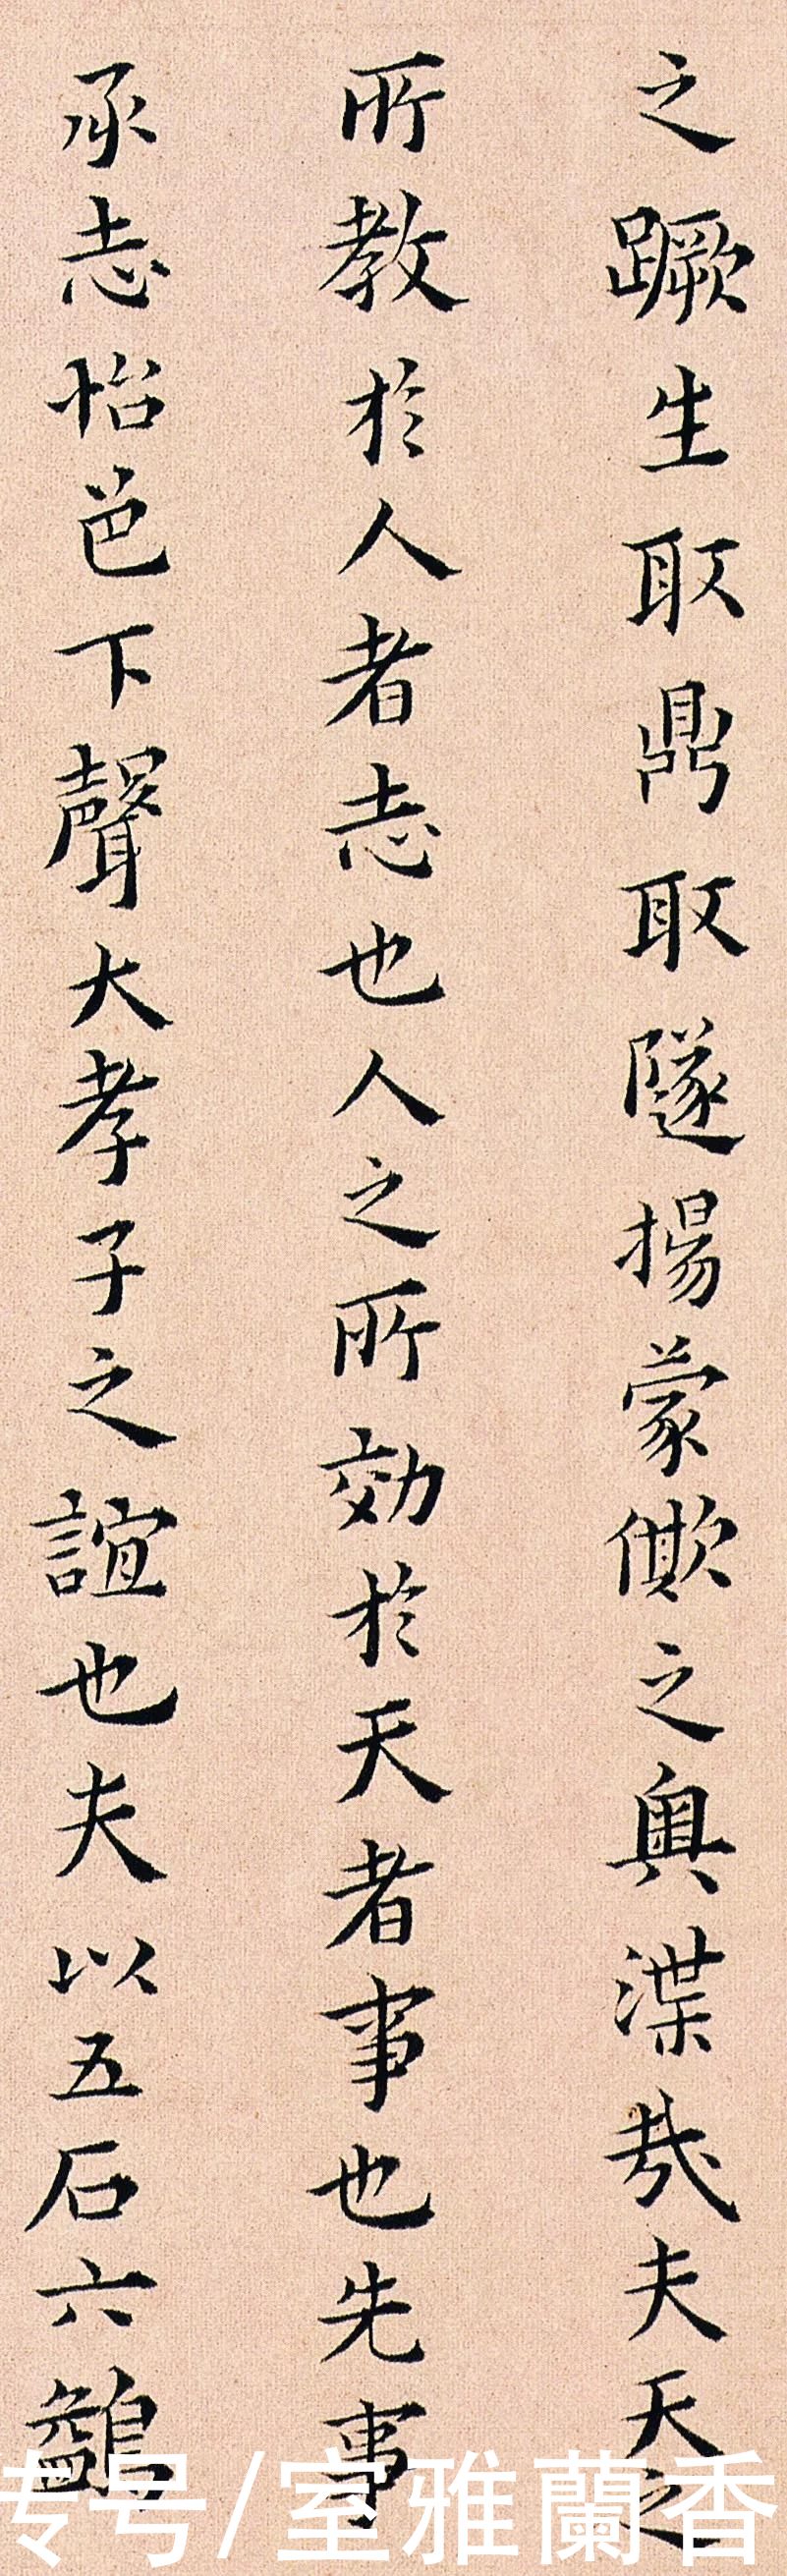 之蹶生取鼎取隧揚蒙僛之輿渫哉夫天之
所教於人者志也人之所効於天者事也先事
承志怡邑下聲大孝子之誼也夫以五石六鷁
专号/室雅蘭香